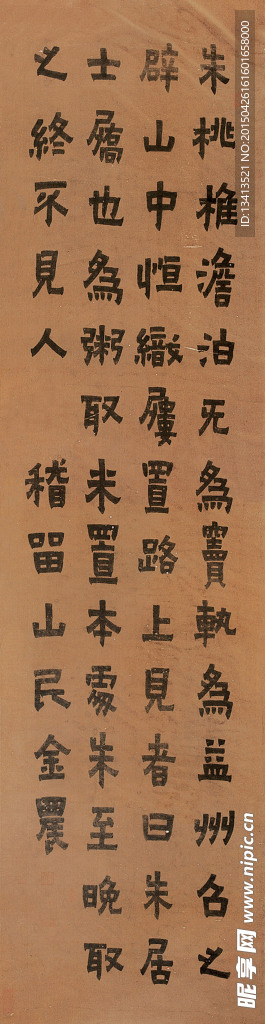 朱桃椎澹泊无為竇軌為益州召之
辟山中恒織屨置路上見者曰朱居
士屩也為粥取米置本處朱至晚取
之終不見人 稽留山民金農
ID:13413521 NO:20150426161601658000
昵享网 www.nipic.cn